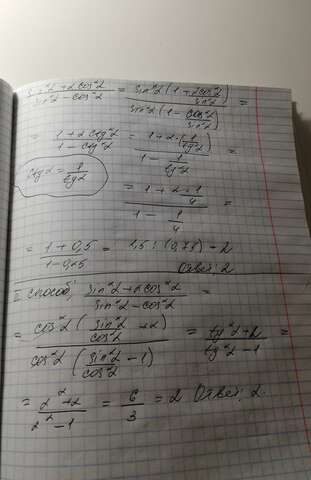 sin²α+2cos²α / sin²α-cos²α = sin²α(1+2cos²α/sin²α) / sin²α(1-cos²α/sin²α) =
= 1+2ctg²α / 1-ctg²α = 1+2·(1/tg²α) / 1-1/tg²α =
ctgα = 1/tgα
= 1+2·1/4 / 1-1/4 =
= 1+0,5 / 1-0,25 = 1,5:(0,75)=2
Ответ: 2
II способ; sin²α+2cos²α / sin²α-cos²α =
= cos²α(sin²α/cos²α+2) / cos²α(sin²α/cos²α-1) = tg²α+2 / tg²α-1 =
= 2²+2 / 2²-1 = 6/3 = 2 Ответ: 2.